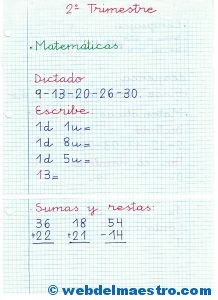 2º Trimestre
. Matemáticas.
Dictado
9-13-20-26-30.
Escribe:
1d 1u=
1d 8u=
1d 5u=
13=
Sumas y restas:
36 18 54
+22 +21 -14
© webdelmaestro.com